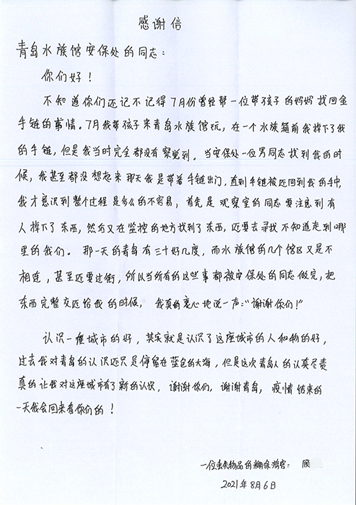 感谢信
青岛水族馆安保处的同志：
你们好！
不知道你们还记不记得7月份曾经帮一位带孩子的妈妈找回金
手链的事情。7月我带孩子来青岛水族馆玩，在一个水族箱前我掉下了我
的手链，但是我当时完全都没有察觉到。当安保处一位男同志找到我的时
候，我甚至都没想起来那天我是带着手链出门，直到手链被送回到我的手中，
我才意识到整个过程是多么的不容易，首先是观察室的同志要注意到有
人掉下了东西，然后又在监控的地方找到了东西，还要去寻找不知道走到哪
里的我们。那一天的青岛有三十好几度，而水族馆的几个馆区又是不
相连，甚至还要过街，所以当所有的这些事都被安保处的同志做完，把
东西完整交还给我的时候，我真的衷心地说一声：“谢谢你们！”
认识一座城市的好，其实就是认识了这座城市的人和物的好，
过去我对青岛的认识还只是停留在蓝色的大海，但是这次青岛人的认真尽责
真的让我对这座城市有了新的认识，谢谢你们，谢谢青岛，疫情结束的
一天我会回来看你们的！
一位丢失物品的 游客：闵
2021年8月6日